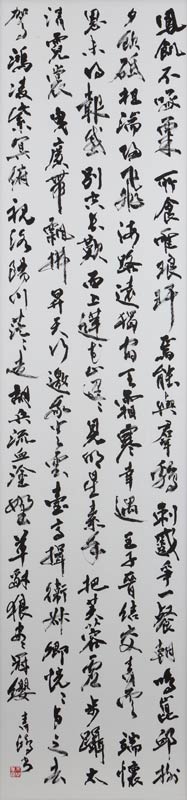 鳳飢不啄粟所食唯琅玕焉能與群鷄刺蹙爭一餐朝鳴崑邱樹
夕飲砥柱湍歸飛海路遠獨宿天霜寒幸遇王子晉結交青雲端懷
恩未得報感別空長歎西上蓮花山迢々見明星素手把芙蓉虛步躡太
清霓裳曳廣帶飄拂昇天行邀我登雲臺高揖衛叔卿恍々與之去
駕鴻凌紫冥俯視洛陽川茫々走胡兵流血塗野草豺狼盡冠纓